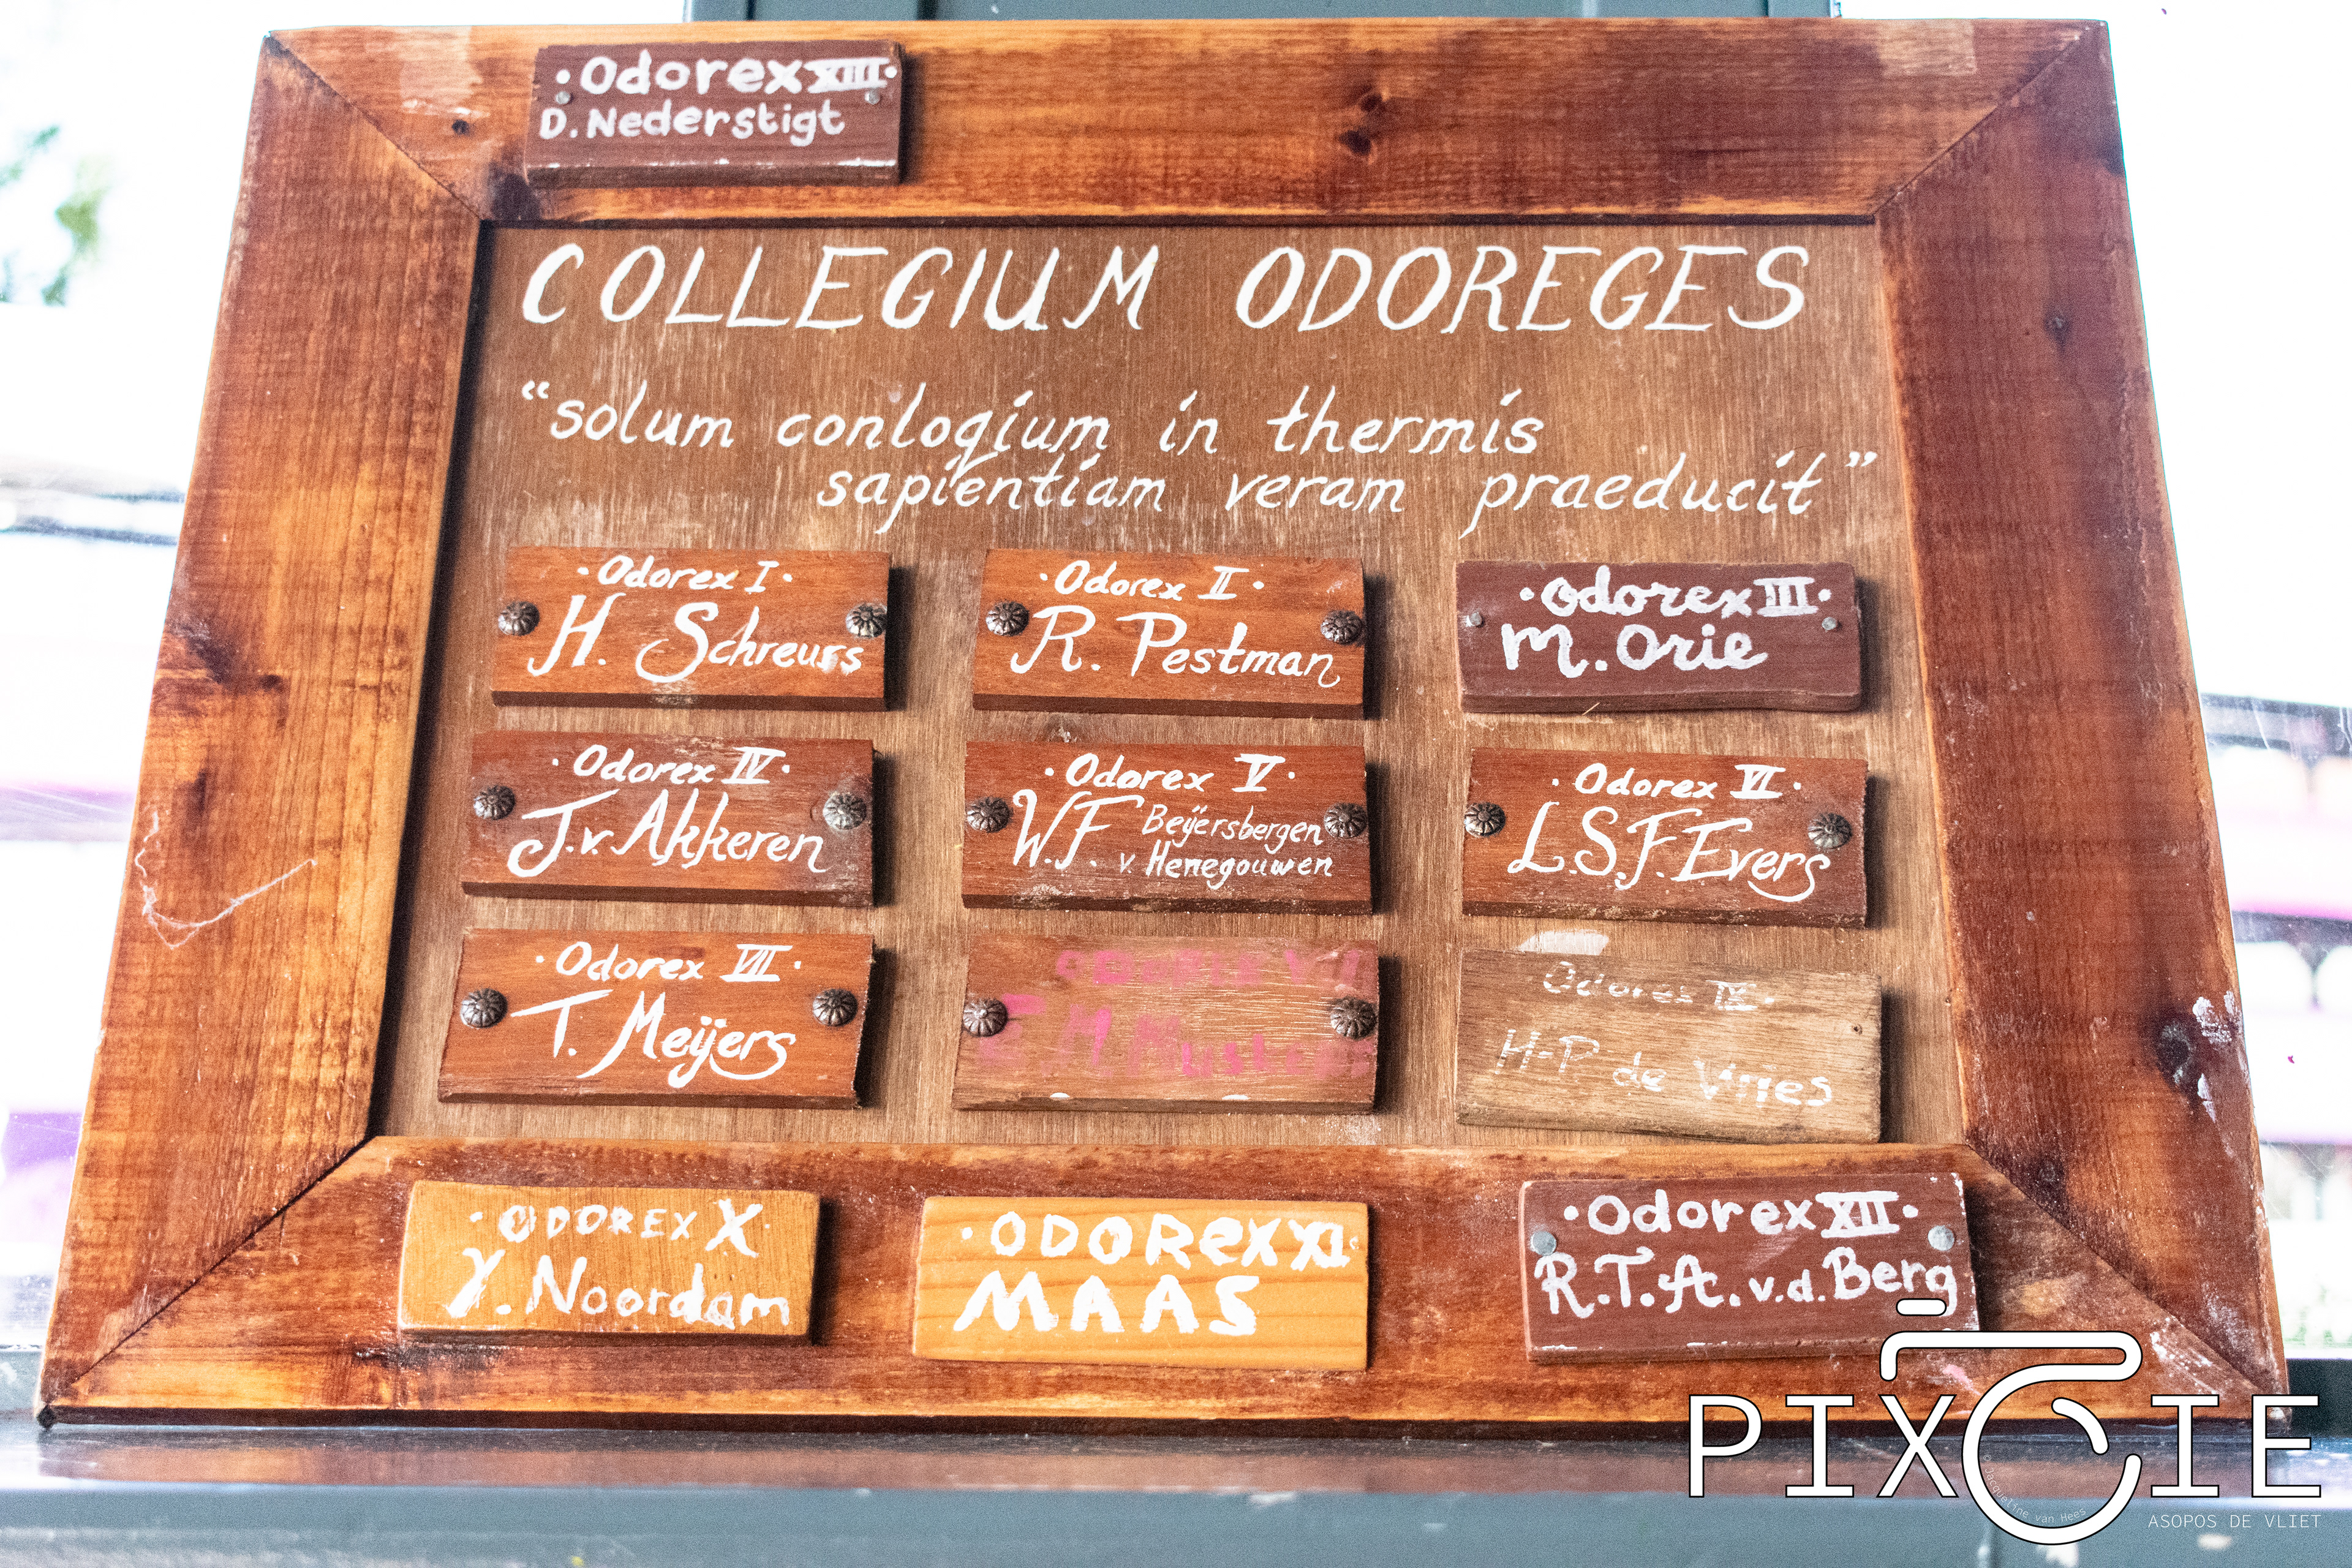 · Odorex XIII ·
D. Nederstigt
COLLEGIUM ODOREGES
“solum conlogium in thermis
sapientiam veram praeducit”
· Odorex I ·
H. Schreurs
· Odorex II ·
R. Pestman
· Odorex III ·
M. Orie
· Odorex IV ·
J. v. Akkeren
· Odorex V ·
W.F. Beijersbergen
v. Henegouwen
· Odorex VI ·
L.S.F. Evers
· Odorex VII ·
T. Meijers
Odorex IX ·
H-P de Vries
· ODOREX X ·
Y. Noordam
· ODOREX XI ·
MAAS
· Odorex XII ·
R.T.A. v.d. Berg
PIXCIE
Jacqueline van Hees
ASOPOS DE VLIET